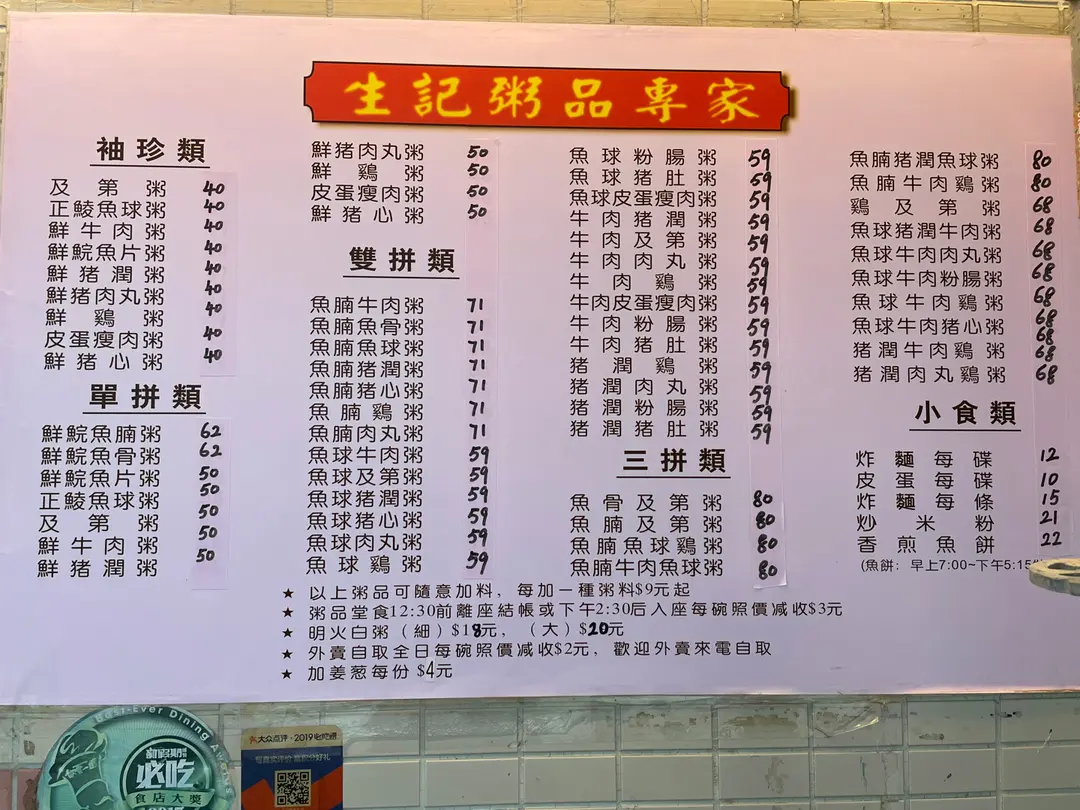 生記粥品專家
袖珍類
及第粥 40
正鯪魚球粥 40
鮮牛肉粥 40
鮮鯇魚片粥 40
鮮猪潤粥 40
鮮猪肉丸粥 40
鮮鷄粥 40
皮蛋瘦肉粥 40
鮮猪心粥 40
單拼類
鮮鯇魚腩粥 62
鮮鯇魚骨粥 62
鮮鯇魚片粥 50
正鯪魚球粥 50
及第粥 50
鮮牛肉粥 50
鮮猪潤粥 50
鮮猪肉丸粥 50
鮮鷄粥 50
皮蛋瘦肉粥 50
鮮猪心粥 50
雙拼類
魚腩牛肉粥 71
魚腩魚骨粥 71
魚腩魚球粥 71
魚腩猪潤粥 71
魚腩猪心粥 71
魚腩鷄粥 71
魚腩肉丸粥 71
魚球牛肉粥 59
魚球及第粥 59
魚球猪潤粥 59
魚球猪心粥 59
魚球肉丸粥 59
魚球鷄粥 59
魚球粉腸粥 59
魚球猪肚粥 59
魚球皮蛋瘦肉粥 59
牛肉猪潤粥 59
牛肉及第粥 59
牛肉肉丸粥 59
牛肉鷄粥 59
牛肉皮蛋瘦肉粥 59
牛肉粉腸粥 59
牛肉猪肚粥 59
猪潤鷄粥 59
猪潤肉丸粥 59
猪潤粉腸粥 59
猪潤猪肚粥 59
三拼類
魚骨及第粥 80
魚腩及第粥 80
魚腩魚球鷄粥 80
魚腩牛肉魚球粥 80
魚腩猪潤魚球粥 80
魚腩牛肉鷄粥 80
鷄及第粥 68
魚球猪潤牛肉粥 68
魚球牛肉肉丸粥 68
魚球牛肉粉腸粥 68
魚球牛肉鷄粥 68
魚球牛肉猪心粥 68
猪潤牛肉鷄粥 68
猪潤肉丸鷄粥 68
小食類
炸麵每碟 12
皮蛋每碟 10
炸麵每條 15
炒米粉 21
香煎魚餅 22
(魚餅: 早上7:00~下午5:15
★ 以上粥品可隨意加料, 每加一種粥料$9元起
★ 粥品堂食12:30前離座結帳或下午2:30后入座每碗照價減收$3元
★ 明火白粥（細）$18元, （大）$20元
★ 外賣自取全日每碗照價減收$2元, 歡迎外賣來電自取
★ 加姜葱每份 $4元
Best-Ever Dining Awards
必吃
食店大獎
大众点评·2019必吃榜